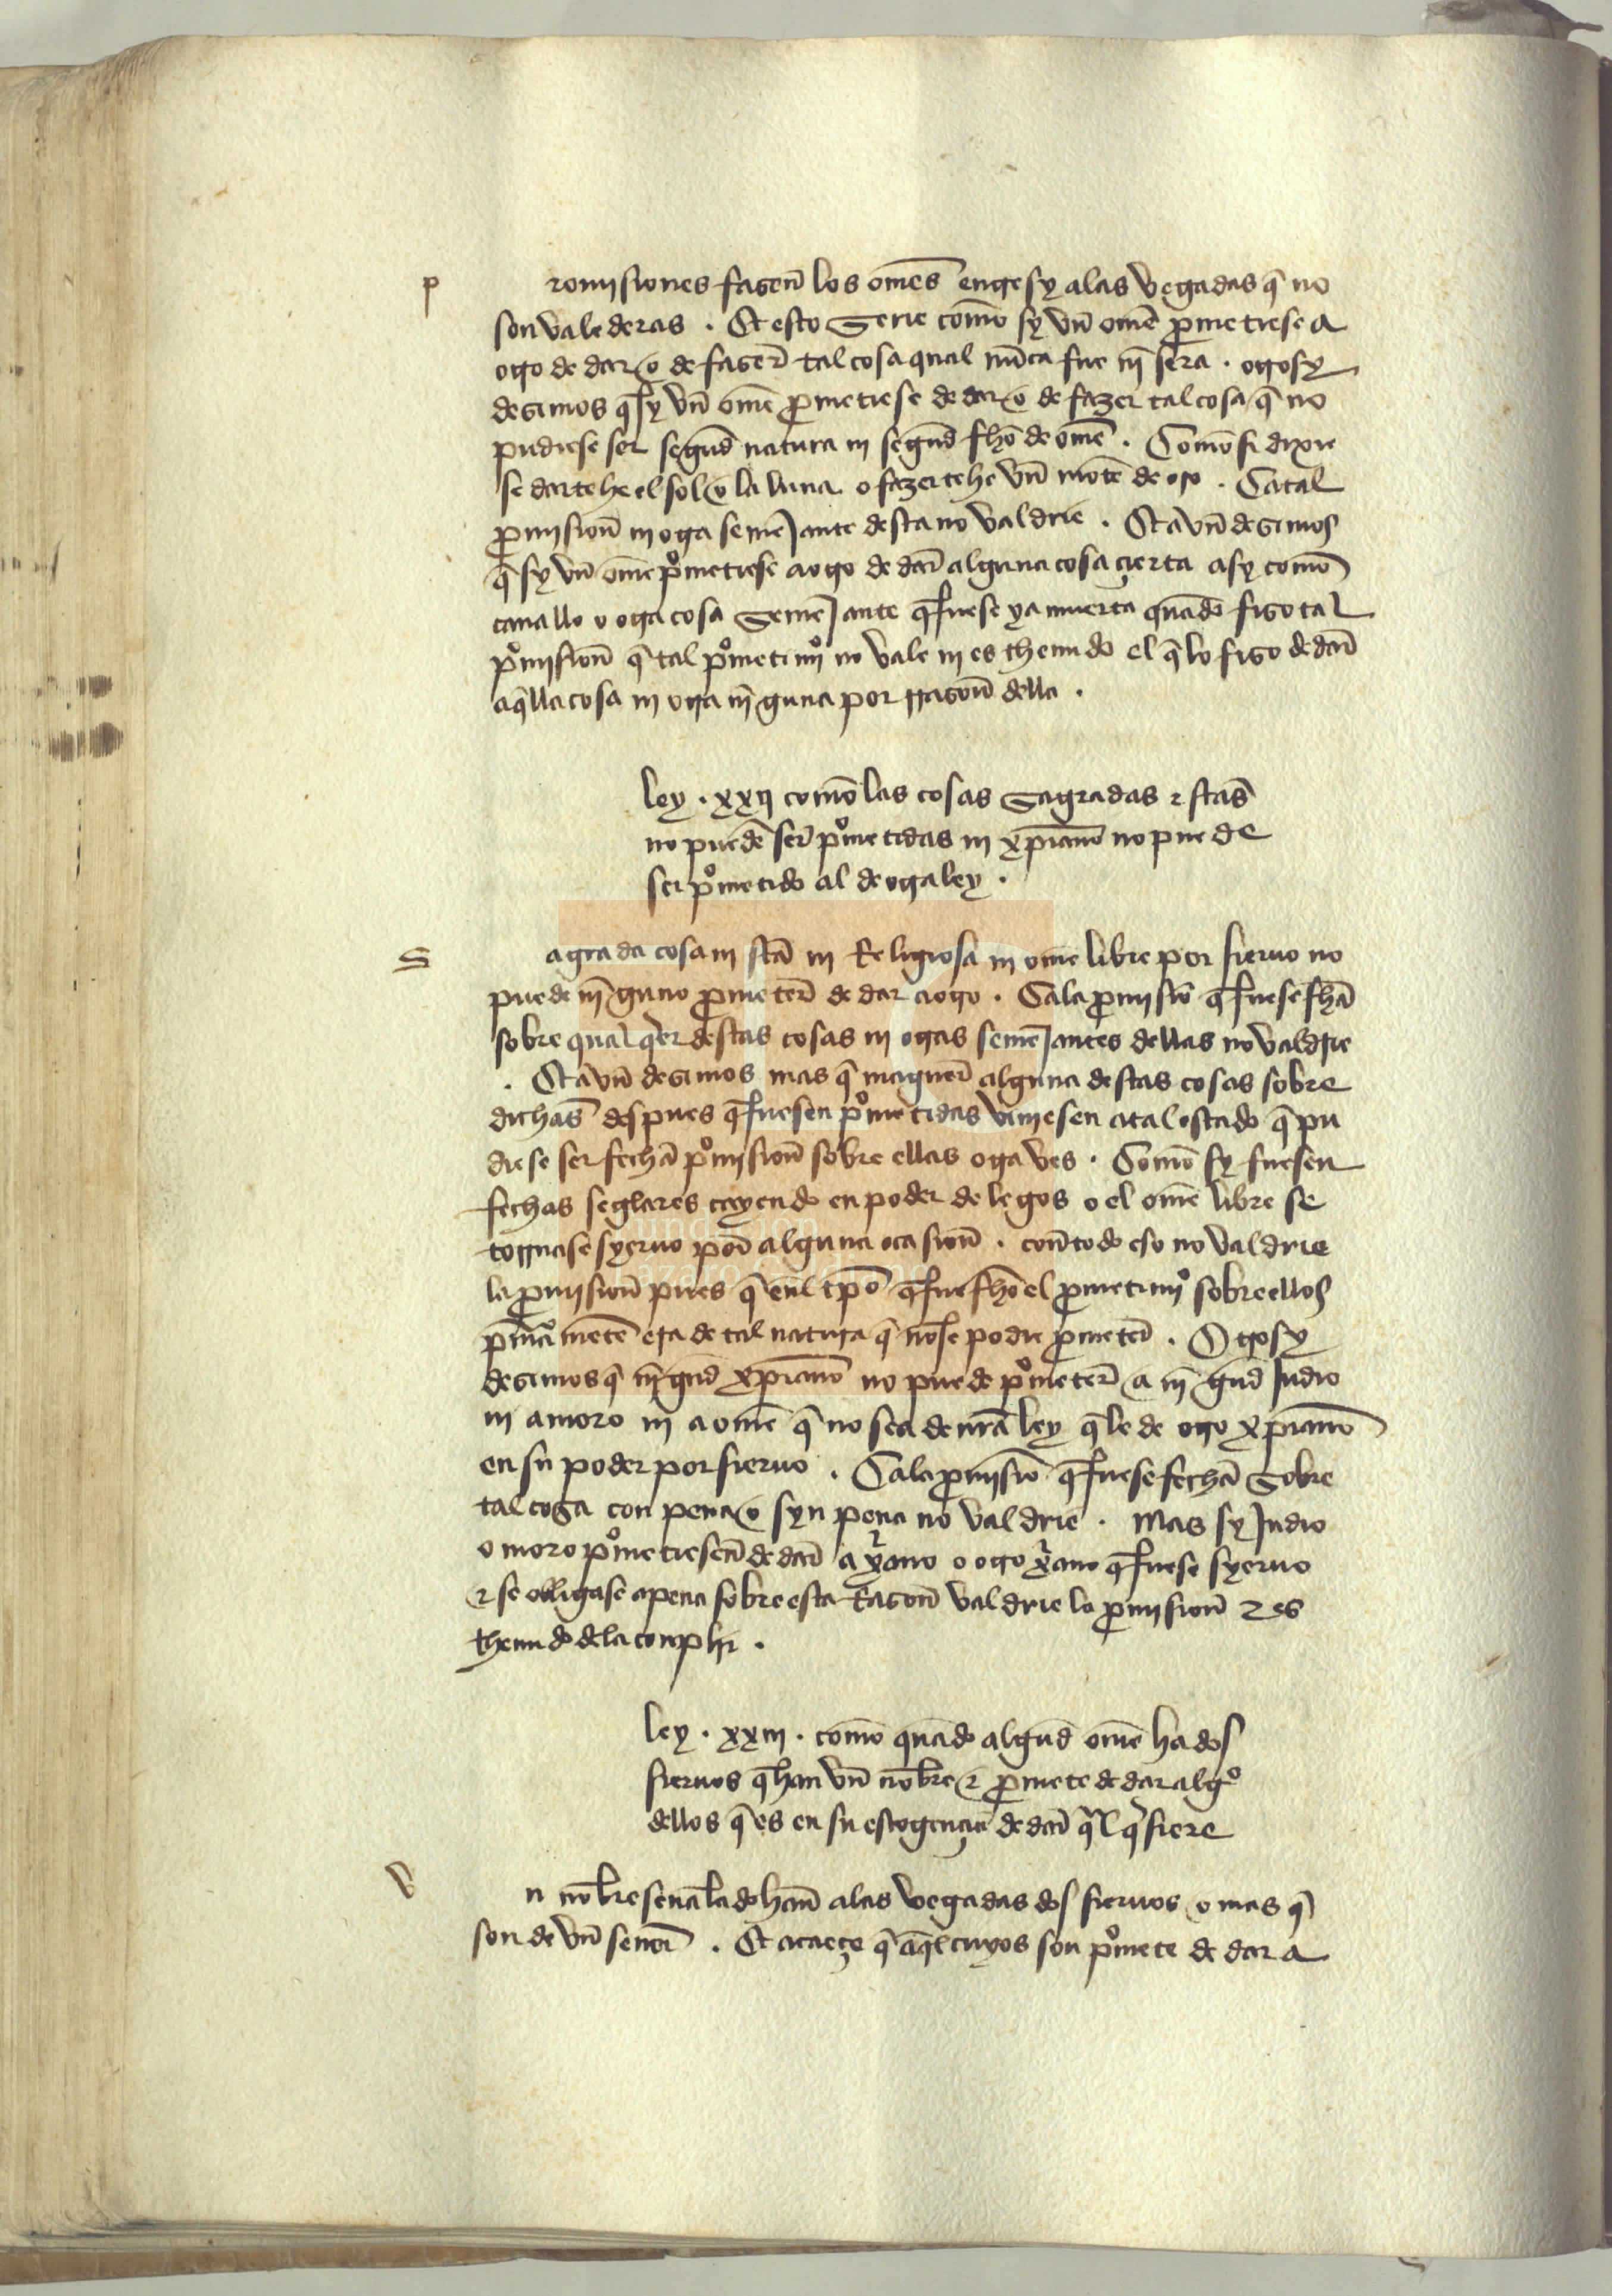 p romisiones fasen̄ los om̄es entresy alas vegadas q̄ no
son valederas . Et esto serie commō sy vn̄ om̄e p̱metiese a
otro de dar o de faser̄ tal cosa qual nūca fue nī sera . otrosy
desimos q̄ sy vn̄ om̄e p̱metiese de dar o de fazer tal cosa q̄ no
pudiese ser segūd natura ni segūd fh̄o de om̄e . Comō si dixie
se darte he el sol o la luna o fazerte he vn̄ mōte de oro . Ca tal
p̱misiōn ni otra semējante desta no valdrie . Et avn̄ desimos
q̄ sy vn̄ om̄e pºmetiese a otro de dar̄ alguna cosa çierta asy comō
cauallo o otra cosa semējante q̄ fuese ya muerta quādo fiso tal
pºmisiōn q̄ tal pºmetimiº no vale ni es thenudo el q̄ lo fiso de dar̄
aq̄lla cosa ni otra nīguna por rrasōn della .
ley . xxij comō las cosas sagradas & st̄as
no puedē ser̄ pºmetidas ni xp̄iano no puede
ser pºmetido al de otra ley .
S agrada cosa ni st̄a ni Religiosa ni om̄e libre por sieruo no
puede nīguno p̱meter̄ de dar a otro . Ca la p̱misiō q̄ fuese fh̄a
sobre qualq̇er destas cosas ni otras semējantes dellas no valdrie
. Et avn̄ desimos mas q̄ maguer̄ alguna destas cosas sobre
dichas̄ despues q̄ fuesen pºmetidas viniesen a tal estado q̄ pu
diese ser fechā pºmisiōn sobre ellas otra ves . Comō sy fuesen
fechas seglares cayendo en poder de legos o el om̄e libre se
tornase syeruo por̄ alguna ocasiōn . con̄ todo eso no valdrie
la p̱misiōn pues q̄ enl̄ tp̄o q̄ fue fh̄o el p̱metimiº sobre ellos
p̱mīa mētē era de tal natura q̄ nōse podie p̱meter̄ . Otrosy
desimos q̄ nīgūd xp̄iano no puede pºmeter̄ a nīgūd Judio
ni a moro ni a om̄e q̄ no sea de nr̄a ley q̄ le de otro xp̄iano
en su poder por sieruo . Ca la p̱misiō q̄ fuese fechā sobre
tal cosa con pena o syn pena no valdrie . Mas sy Judio
o moro pºmetiesen̄ de dar̄ a xr̄ano o otro xr̄ano q̄ fuese syeruo
& se obligase a pena sobre esta Rasōn valdrie la p̱misiōn & es
thenudo dela conplir .
ley . xxiij . comō quādo algūd om̄e ha dos
sieruos q̄ han vn̄ nōbre & p̱mete de dar algº
dellos q̄ es en su escogençia de dar̄ q̄l q̇siere
V n nōbre señalado han̄ alas vegadas dos sieruos o mas q̄
son de vn̄ señor̄ . Et acaeçe q̄ aq̄l cuyos son pºmete de dar a